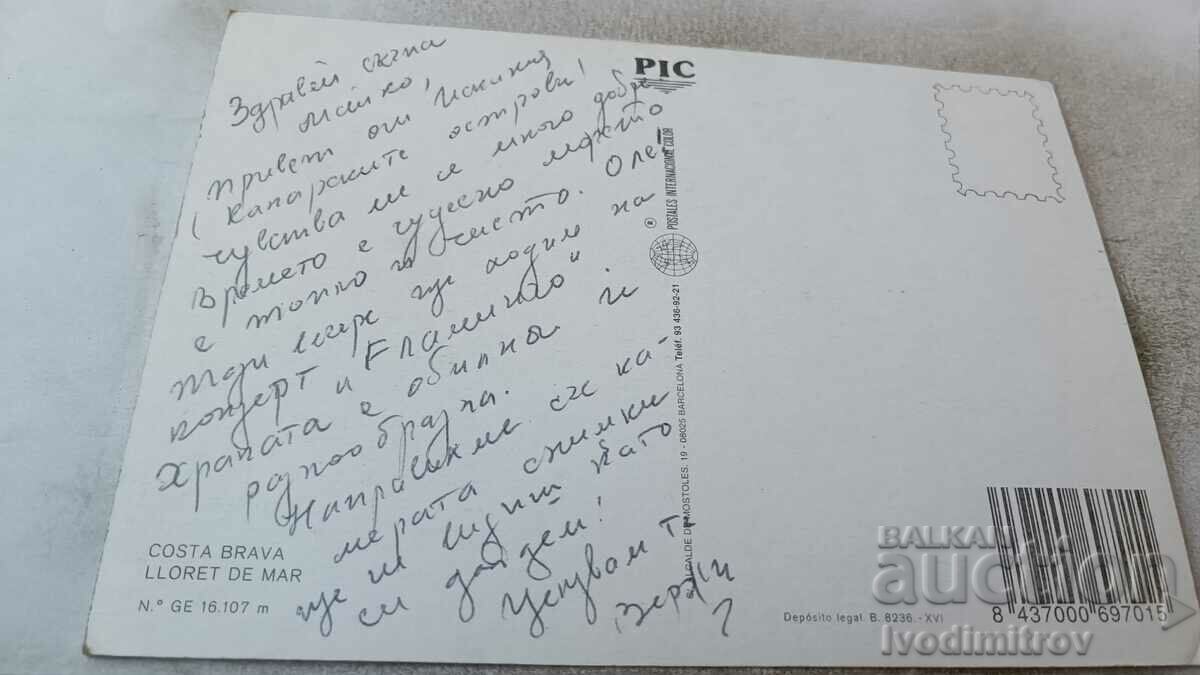 Здравей скъпа
майко,
привет от
(Канарските острови!
чувства ми се много добре.
Времето е чудесно морето
е топло и чисто. Оле!
Тази вечер ще ходим на
концерт и "Фламинго"
Храната е обилна и
разнообразна.
Направихме със ка-
мерата снимки
ще ги видиш като
си дойдем!
Целувам т.
COSTA BRAVA
LLORET DE MAR
N.º GE 16.107 m
PIC
POSTALES INTERNACIONALES COLOR
ALCALDE DE MOSTOLES, 19 - 08025 BARCELONA Teléf. 93 436-92-21
8 437000 697015
Depósito legal. B. 8236.-XVI
BALKAN
auction
Ivodimitrov